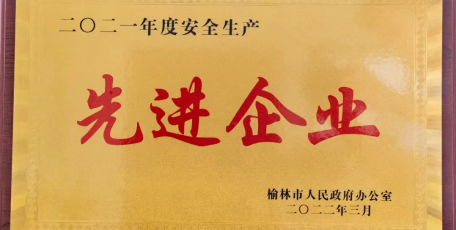 二〇二一年度安全生产
先进企业
榆林市人民政府办公室
二〇二二年三月